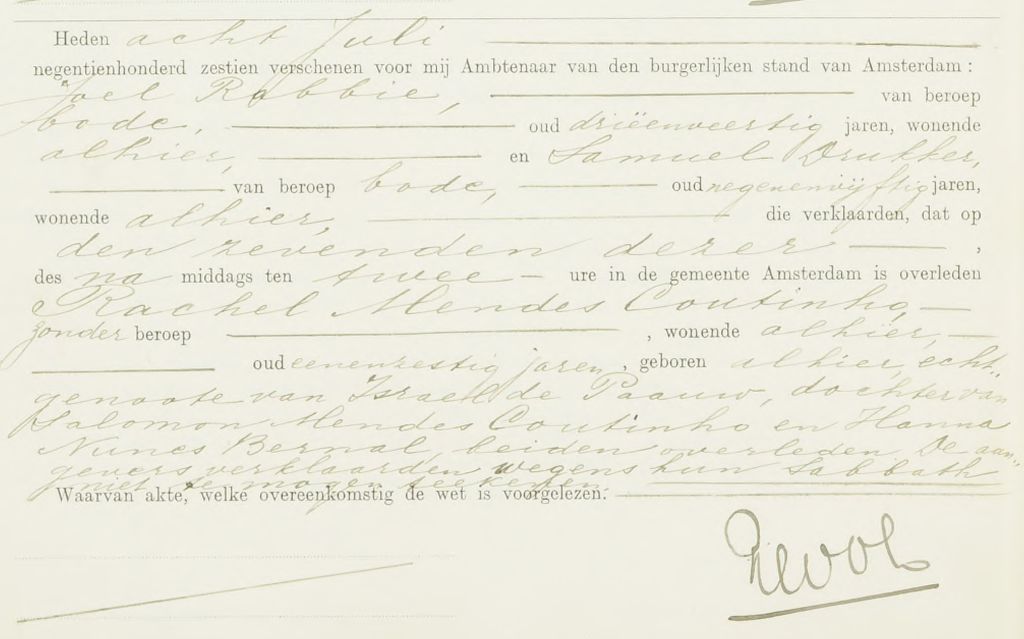 Heden acht Juli
negentienhonderd zestien verschenen voor mij Ambtenaar van den burgerlijken stand van Amsterdam:
Joel Robbie, van beroep
bode, oud drieënveertig jaren, wonende
alhier, en Samuel Drukker,
van beroep bode, oud negenenvijftig jaren,
wonende alhier, die verklaarden, dat op
den zevenden dezer,
des na middags ten twee ure in de gemeente Amsterdam is overleden
Rachel Mendes Coutinho,
zonder beroep, wonende alhier,
oud eenenzestig jaren, geboren alhier, echt„
genoote van Israel de Paauw, dochter van
Salomon Mendes Coutinho en Hanna
Nunes Bernal, beiden overleden. De aan„
gevers verklaarden wegens hun Sabbath
niet te mogen teekenen.
Waarvan akte, welke overeenkomstig de wet is voorgelezen.